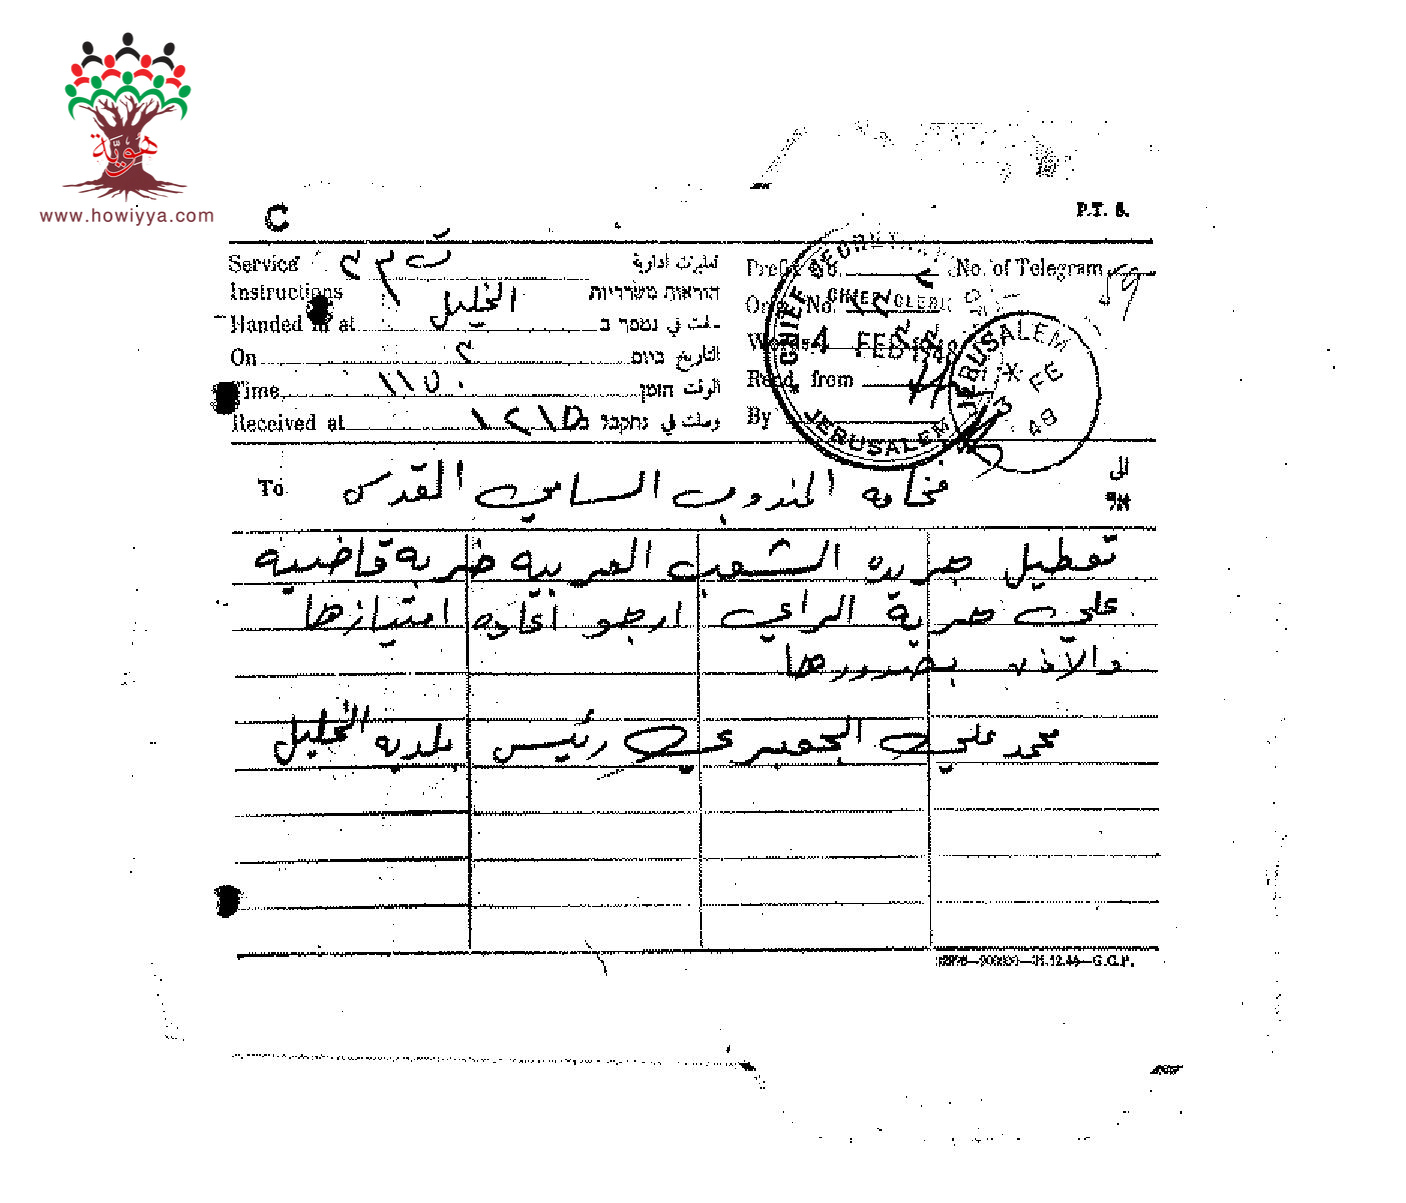 هويّة
www.howiyya.com
C
P.T. 8.
Service
Instructions
تعليمات ادارية
הוראות משרדיות
Handed in at الخليل سلمت في נמסר ב
On ٢ التاريخ ביום
Time ١١٥٠ الوقت הזמן
Received at ١٢١٥ وصلت في נתקבל ב
Prefix No. of Telegram ٥٩
Orig. No.
Words
Read from
By
CHIEF SECRETARY
CHIEF CLERK
4 FEB 1948
JERUSALEM
JERUSALEM
FE
48
To فخامه المندوب السامي القدس الى אל
تعطيل جريده الشعب العربيه ضربة قاضيه
على حرية الراي ارجو اعاده امتيازها
والاذن بصدورها
محمد علي الجعبري رئيس بلديه الخليل
31.12.46—G.C.P.